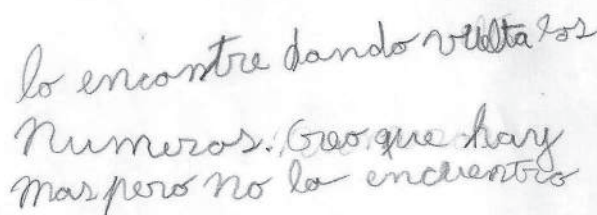 lo encontre dando vuelta los
numeros. Creo que hay
mas pero no lo encuentro